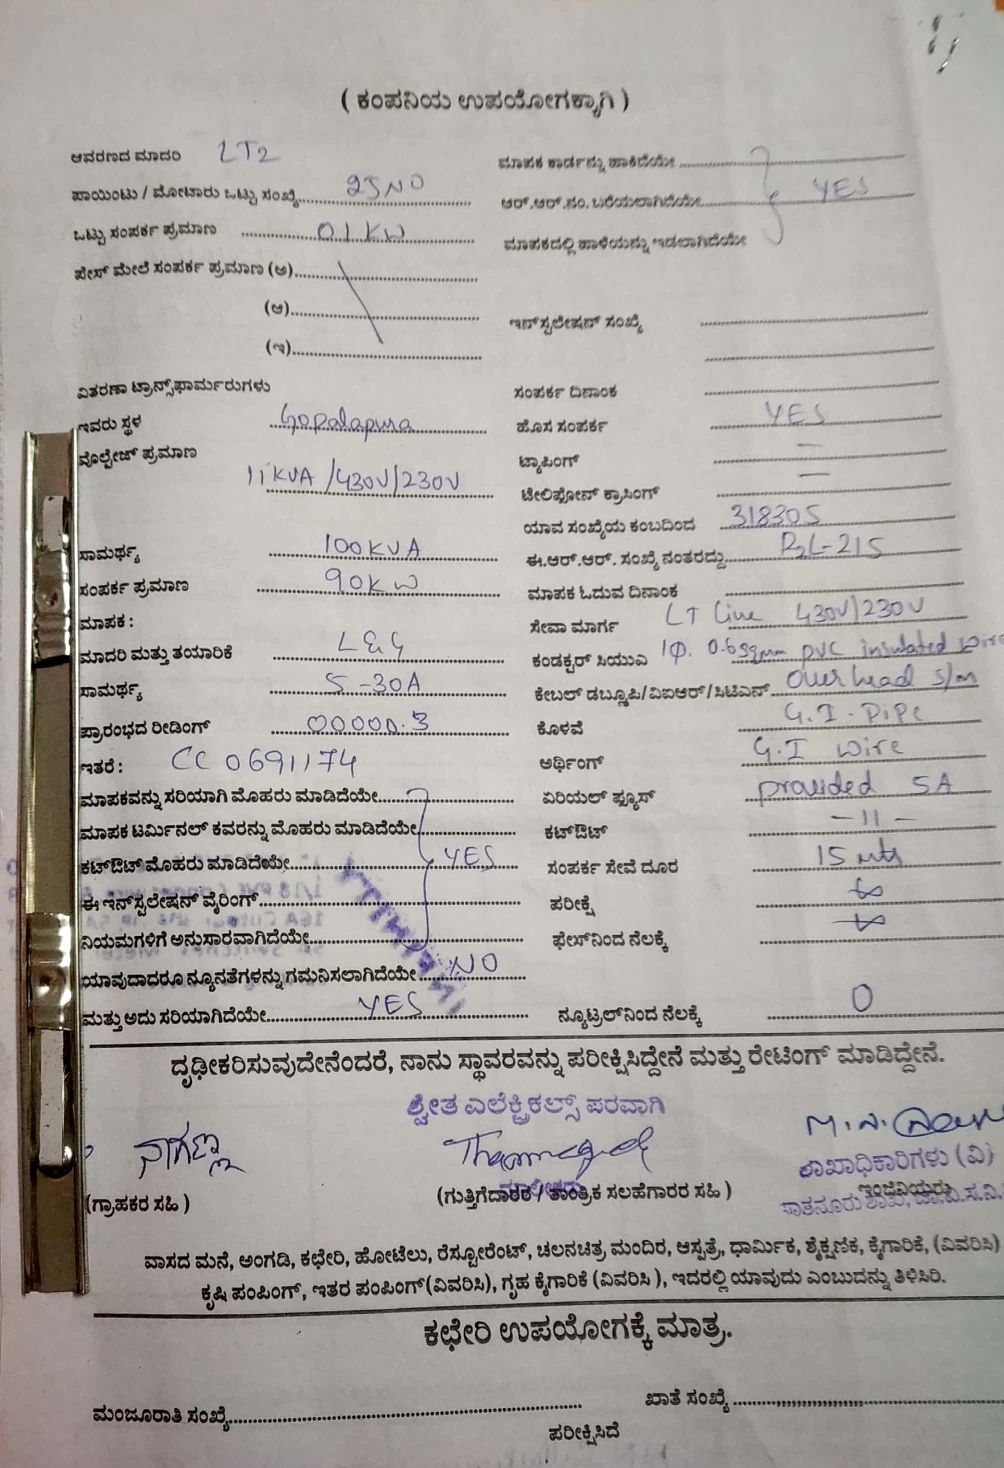 ( ಕಂಪನಿಯ ಉಪಯೋಗಕ್ಕಾಗಿ )
ಆವರಣದ ಮಾದರಿ LT2
ಪಾಯಿಂಟು / ಮೋಟಾರು ಒಟ್ಟು ಸಂಖ್ಯೆ
ಒಟ್ಟು ಸಂಪರ್ಕ ಪ್ರಮಾಣ 01KW
ಪೇಸ್ ಮೇಲೆ ಸಂಪರ್ಕ ಪ್ರಮಾಣ (ಅ)
(ಆ)
(ಇ)
ವಿತರಣಾ ಟ್ರಾನ್ಸ್‌ಫಾರ್ಮರುಗಳು
ಇವರು ಸ್ಥಳ Gopalapura
ವೊಲ್ಟೇಜ್ ಪ್ರಮಾಣ
11KVA /430V/230V
ಸಾಮರ್ಥ್ಯ 100KVA
ಸಂಪರ್ಕ ಪ್ರಮಾಣ 90KW
ಮಾಪಕ :
ಮಾದರಿ ಮತ್ತು ತಯಾರಿಕೆ L&G
ಸಾಮರ್ಥ್ಯ 5-30A
ಪ್ರಾರಂಭದ ರೀಡಿಂಗ್ 00000.3
ಇತರೆ : CC 0691174
ಮಾಪಕವನ್ನು ಸರಿಯಾಗಿ ಮೊಹರು ಮಾಡಿದೆಯೇ
ಮಾಪಕ ಟರ್ಮಿನಲ್ ಕವರನ್ನು ಮೊಹರು ಮಾಡಿದೆಯೇ
ಕಟ್‌ಔಟ್ ಮೊಹರು ಮಾಡಿದೆಯೇ YES
ಈ ಇನ್‌ಸ್ಟಲೇಷನ್ ವೈರಿಂಗ್
ನಿಯಮಗಳಿಗೆ ಅನುಸಾರವಾಗಿದೆಯೇ
ಯಾವುದಾದರೂ ನ್ಯೂನತೆಗಳನ್ನು ಗಮನಿಸಲಾಗಿದೆಯೇ NO
ಮತ್ತು ಅದು ಸರಿಯಾಗಿದೆಯೇ YES
ಮಾಪಕ ಕಾರ್ಡನ್ನು ಹಾಕಿದೆಯೇ
ಆರ್.ಆರ್.ನಂ. ಬರೆಯಲಾಗಿದೆಯೇ YES
ಮಾಪಕದಲ್ಲಿ ಹಾಳೆಯನ್ನು ಇಡಲಾಗಿದೆಯೇ
ಇನ್‌ಸ್ಟಲೇಷನ್ ಸಂಖ್ಯೆ
ಸಂಪರ್ಕ ದಿನಾಂಕ
ಹೊಸ ಸಂಪರ್ಕ YES
ಟ್ಯಾಪಿಂಗ್ —
ಟೇಲಿಫೋನ್ ಕ್ರಾಸಿಂಗ್ —
ಯಾವ ಸಂಖ್ಯೆಯ ಕಂಬದಿಂದ 318305
ಈ.ಆರ್.ಆರ್. ಸಂಖ್ಯೆ ನಂತರದ್ದು
ಮಾಪಕ ಓದುವ ದಿನಾಂಕ
ಸೇವಾ ಮಾರ್ಗ LT Line 430V/230V
ಕಂಡಕ್ಟರ್ ಸಿಯುವಿ 1φ. 0.6sqmm PVC insulated wire
ಕೇಬಲ್ ಡಬ್ಲ್ಯೂಪಿ/ವಿಐಆರ್/ಸಿಟಿಎನ್ over head s/m
ಕೊಳವೆ G.I.PIPE
ಅರ್ಥಿಂಗ್ G.I wire
ಏರಿಯಲ್ ಫ್ಯೂಸ್ provided 5A
ಕಟ್‌ಔಟ್ -11-
ಸಂಪರ್ಕ ಸೇವೆ ದೂರ 15 mts
ಪರೀಕ್ಷೆ ∞
ಫೇಸ್‌ನಿಂದ ನೆಲಕ್ಕೆ ∞
ನ್ಯೂಟ್ರಲ್‌ನಿಂದ ನೆಲಕ್ಕೆ 0
ದೃಢೀಕರಿಸುವುದೇನೆಂದರೆ, ನಾನು ಸ್ಥಾವರವನ್ನು ಪರೀಕ್ಷಿಸಿದ್ದೇನೆ ಮತ್ತು ರೇಟಿಂಗ್ ಮಾಡಿದ್ದೇನೆ.
ಶ್ವೇತ ಎಲೆಕ್ಟ್ರಿಕಲ್ಸ್ ಪರವಾಗಿ
ನಾಗಣ್ಣ
ಶಾಖಾಧಿಕಾರಿಗಳು (ವಿ)
(ಗ್ರಾಹಕರ ಸಹಿ ) (ಗುತ್ತಿಗೆದಾರರ / ತಾಂತ್ರಿಕ ಸಲಹೆಗಾರರ ಸಹಿ ) ಇಂಜಿನಿಯರು
ವಾಸದ ಮನೆ, ಅಂಗಡಿ, ಕಛೇರಿ, ಹೋಟೆಲು, ರೆಸ್ಟೋರೆಂಟ್, ಚಲನಚಿತ್ರ ಮಂದಿರ, ಆಸ್ಪತ್ರೆ, ಧಾರ್ಮಿಕ, ಶೈಕ್ಷಣಿಕ, ಕೈಗಾರಿಕೆ, (ವಿವರಿಸಿ)
ಕೃಷಿ ಪಂಪಿಂಗ್, ಇತರ ಪಂಪಿಂಗ್ (ವಿವರಿಸಿ), ಗೃಹ ಕೈಗಾರಿಕೆ (ವಿವರಿಸಿ ), ಇದರಲ್ಲಿ ಯಾವುದು ಎಂಬುದನ್ನು ತಿಳಿಸಿರಿ.
ಕಛೇರಿ ಉಪಯೋಗಕ್ಕೆ ಮಾತ್ರ.
ಮಂಜೂರಾತಿ ಸಂಖ್ಯೆ ಖಾತೆ ಸಂಖ್ಯೆ
ಪರೀಕ್ಷಿಸಿದೆ